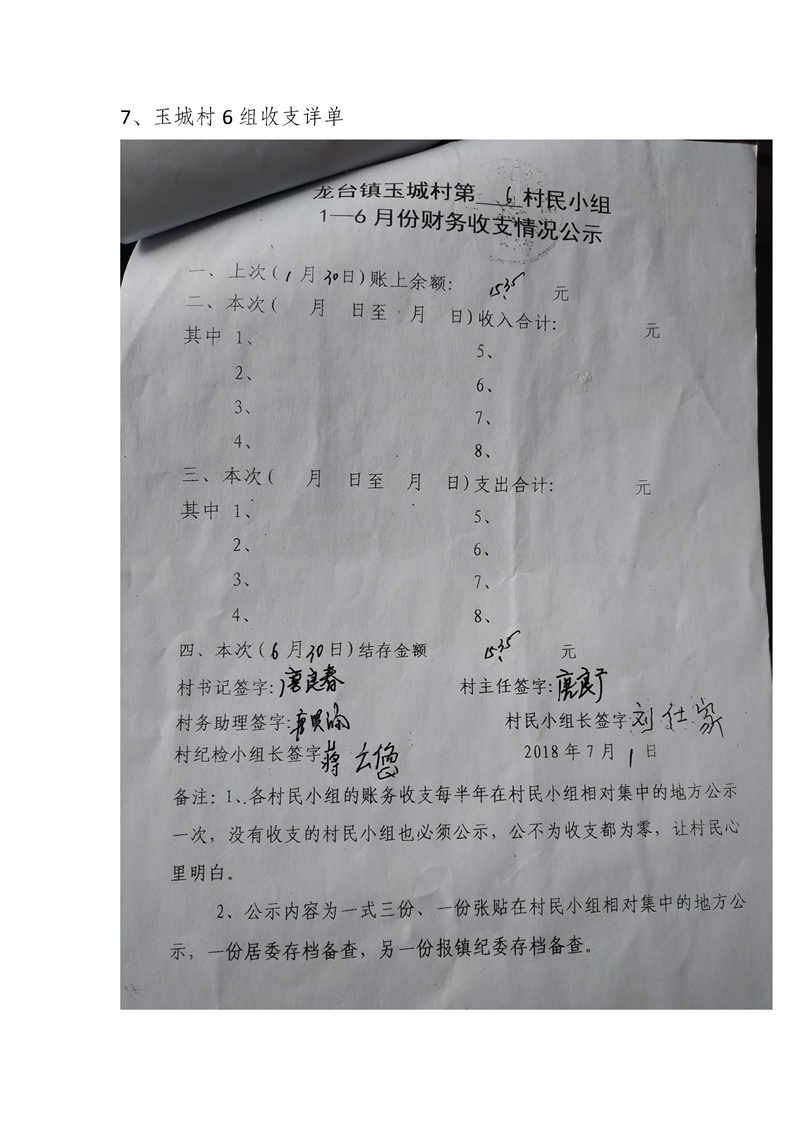 7、玉城村 6 组收支详单
龙台镇玉城村第 6 村民小组
1—6 月份财务收支情况公示
一、上次(1月30日)账上余额: 元
二、本次( 月 日至 月 日)收入合计: 元
其中 1、 5、
2、 6、
3、 7、
4、 8、
三、本次( 月 日至 月 日)支出合计: 元
其中 1、 5、
2、 6、
3、 7、
4、 8、
四、本次(6月30日)结存金额 元
村书记签字:唐良春 村主任签字:
村务助理签字: 村民小组长签字刘仕家
村纪检小组长签字 2018 年 7 月 1 日
备注:1、各村民小组的账务收支每半年在村民小组相对集中的地方公示
一次，没有收支的村民小组也必须公示，公不为收支都为零，让村民心
里明白。
2、公示内容为一式三份、一份张贴在村民小组相对集中的地方公
示，一份居委存档备查，另一份报镇纪委存档备查。